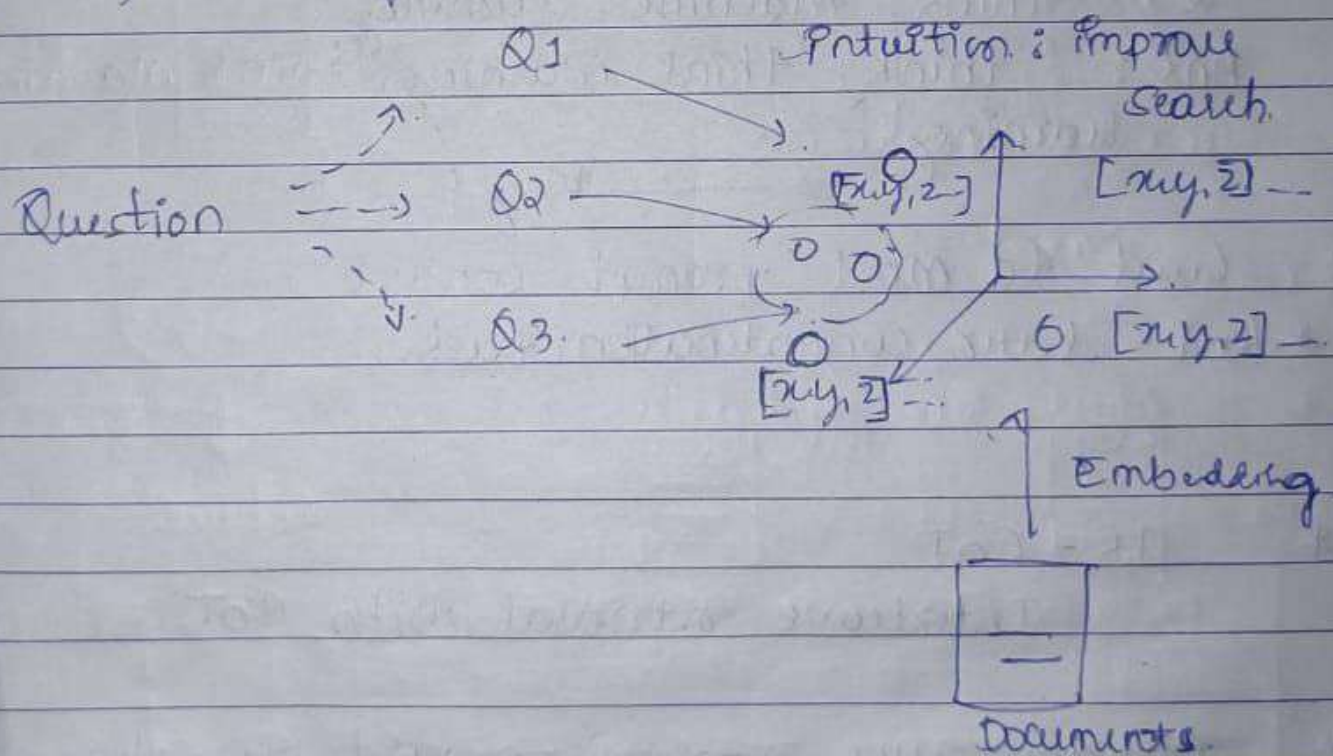 Q1 Intuition : improve
search.
[x,y,z] [x,y,z] ...
Question Q2
Q3. [x,y,z] ...
[x,y,z] ...
Embedding
Documents